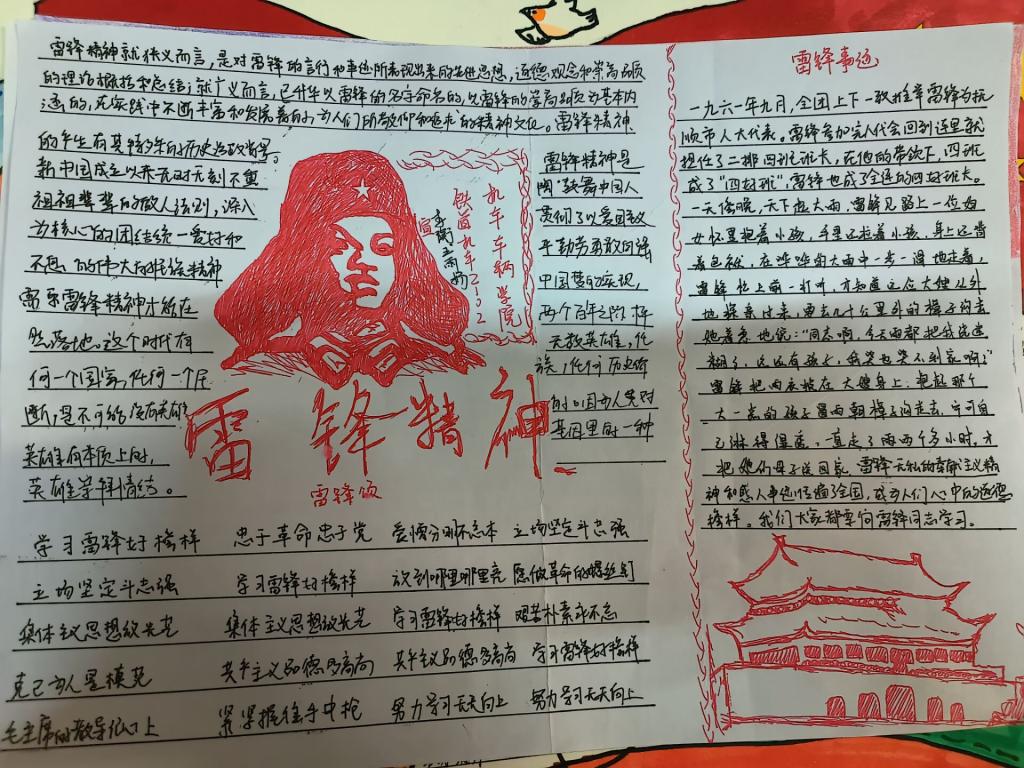 雷锋精神就狭义而言,是对雷锋的言行和事迹所表现出来的先进思想,道德观念和崇高品质
的理论概括和总结;就广义而言,已升华以雷锋的名字命名的,以雷锋的崇高品质为基本内
涵的,在实践中不断丰富和发展着的,为人们所敬仰和追求的精神文化。雷锋精神
的产生有其特多年的历史造政背景。
新中国成立以来无时无刻不与
祖祖辈辈的做人法则,深入
为核心的团结统一爱好和
不息的伟大的民族精神
雷乐雷锋精神才能在
然落地。这个时代有
何一个国家,任何一个民
断,是不可能没有英雄
英雄在本质上的,
英雄崇拜情结。
雷锋精神是
鼓舞中国人
贯彻了以爱国主义
平勤劳勇敢自强
中国梦的实现,
两个百年
无数英雄,任
族,任何历史阶
的口因为人类对
基因里的一种
机车车辆学院
铁道机车2302
雷锋精神
雷锋颂
学习雷锋好榜样 忠于革命忠于党 爱憎分明不忘本 立场坚定斗志强
立场坚定斗志强 学习雷锋好榜样 放到哪里哪里亮 愿做革命的螺丝钉
集体主义思想放光芒 集体主义思想放光芒 学习雷锋好榜样 艰苦朴素永不忘
克己为人是模范 共产主义品德多高尚 共产主义品德多高尚 学习雷锋好榜样
毛主席的教导记心上 紧紧握住手中枪 努力学习天天向上 努力学习天天向上
雷锋事迹
一九六一年九月,全团上下一致推举雷锋为抚
顺市人大代表。雷锋参加完人代会回到连里就
担任了二排四班班长,在他的带领下,四班
成了"四好班",雷锋也成了全连的四好班长。
一天傍晚,天下起大雨,雷锋见路上一位妇
女怀里抱着小孩,手里还拉着小孩,身上还背
着包袱,在哗哗的大雨中一步一滑地走着,
雷锋忙上前一打听,才知道这位大嫂从外
地探亲过来,要去几十公里外的樟子沟去
她着急地说:"同志啊,今天雨都把我浇迷
糊了,这还有孩子,我哭也哭不到家啊!"
雷锋把雨衣披在大嫂身上,抱起那个
大一点的孩子冒雨朝樟子沟走去,宁可自
己淋得湿透,一直走了两个多小时,才
把她们母子送回家。雷锋无私的共产主义精
神和感人事迹传遍了全国,成为人们心中的道德
榜样。我们大家都要向雷锋同志学习。